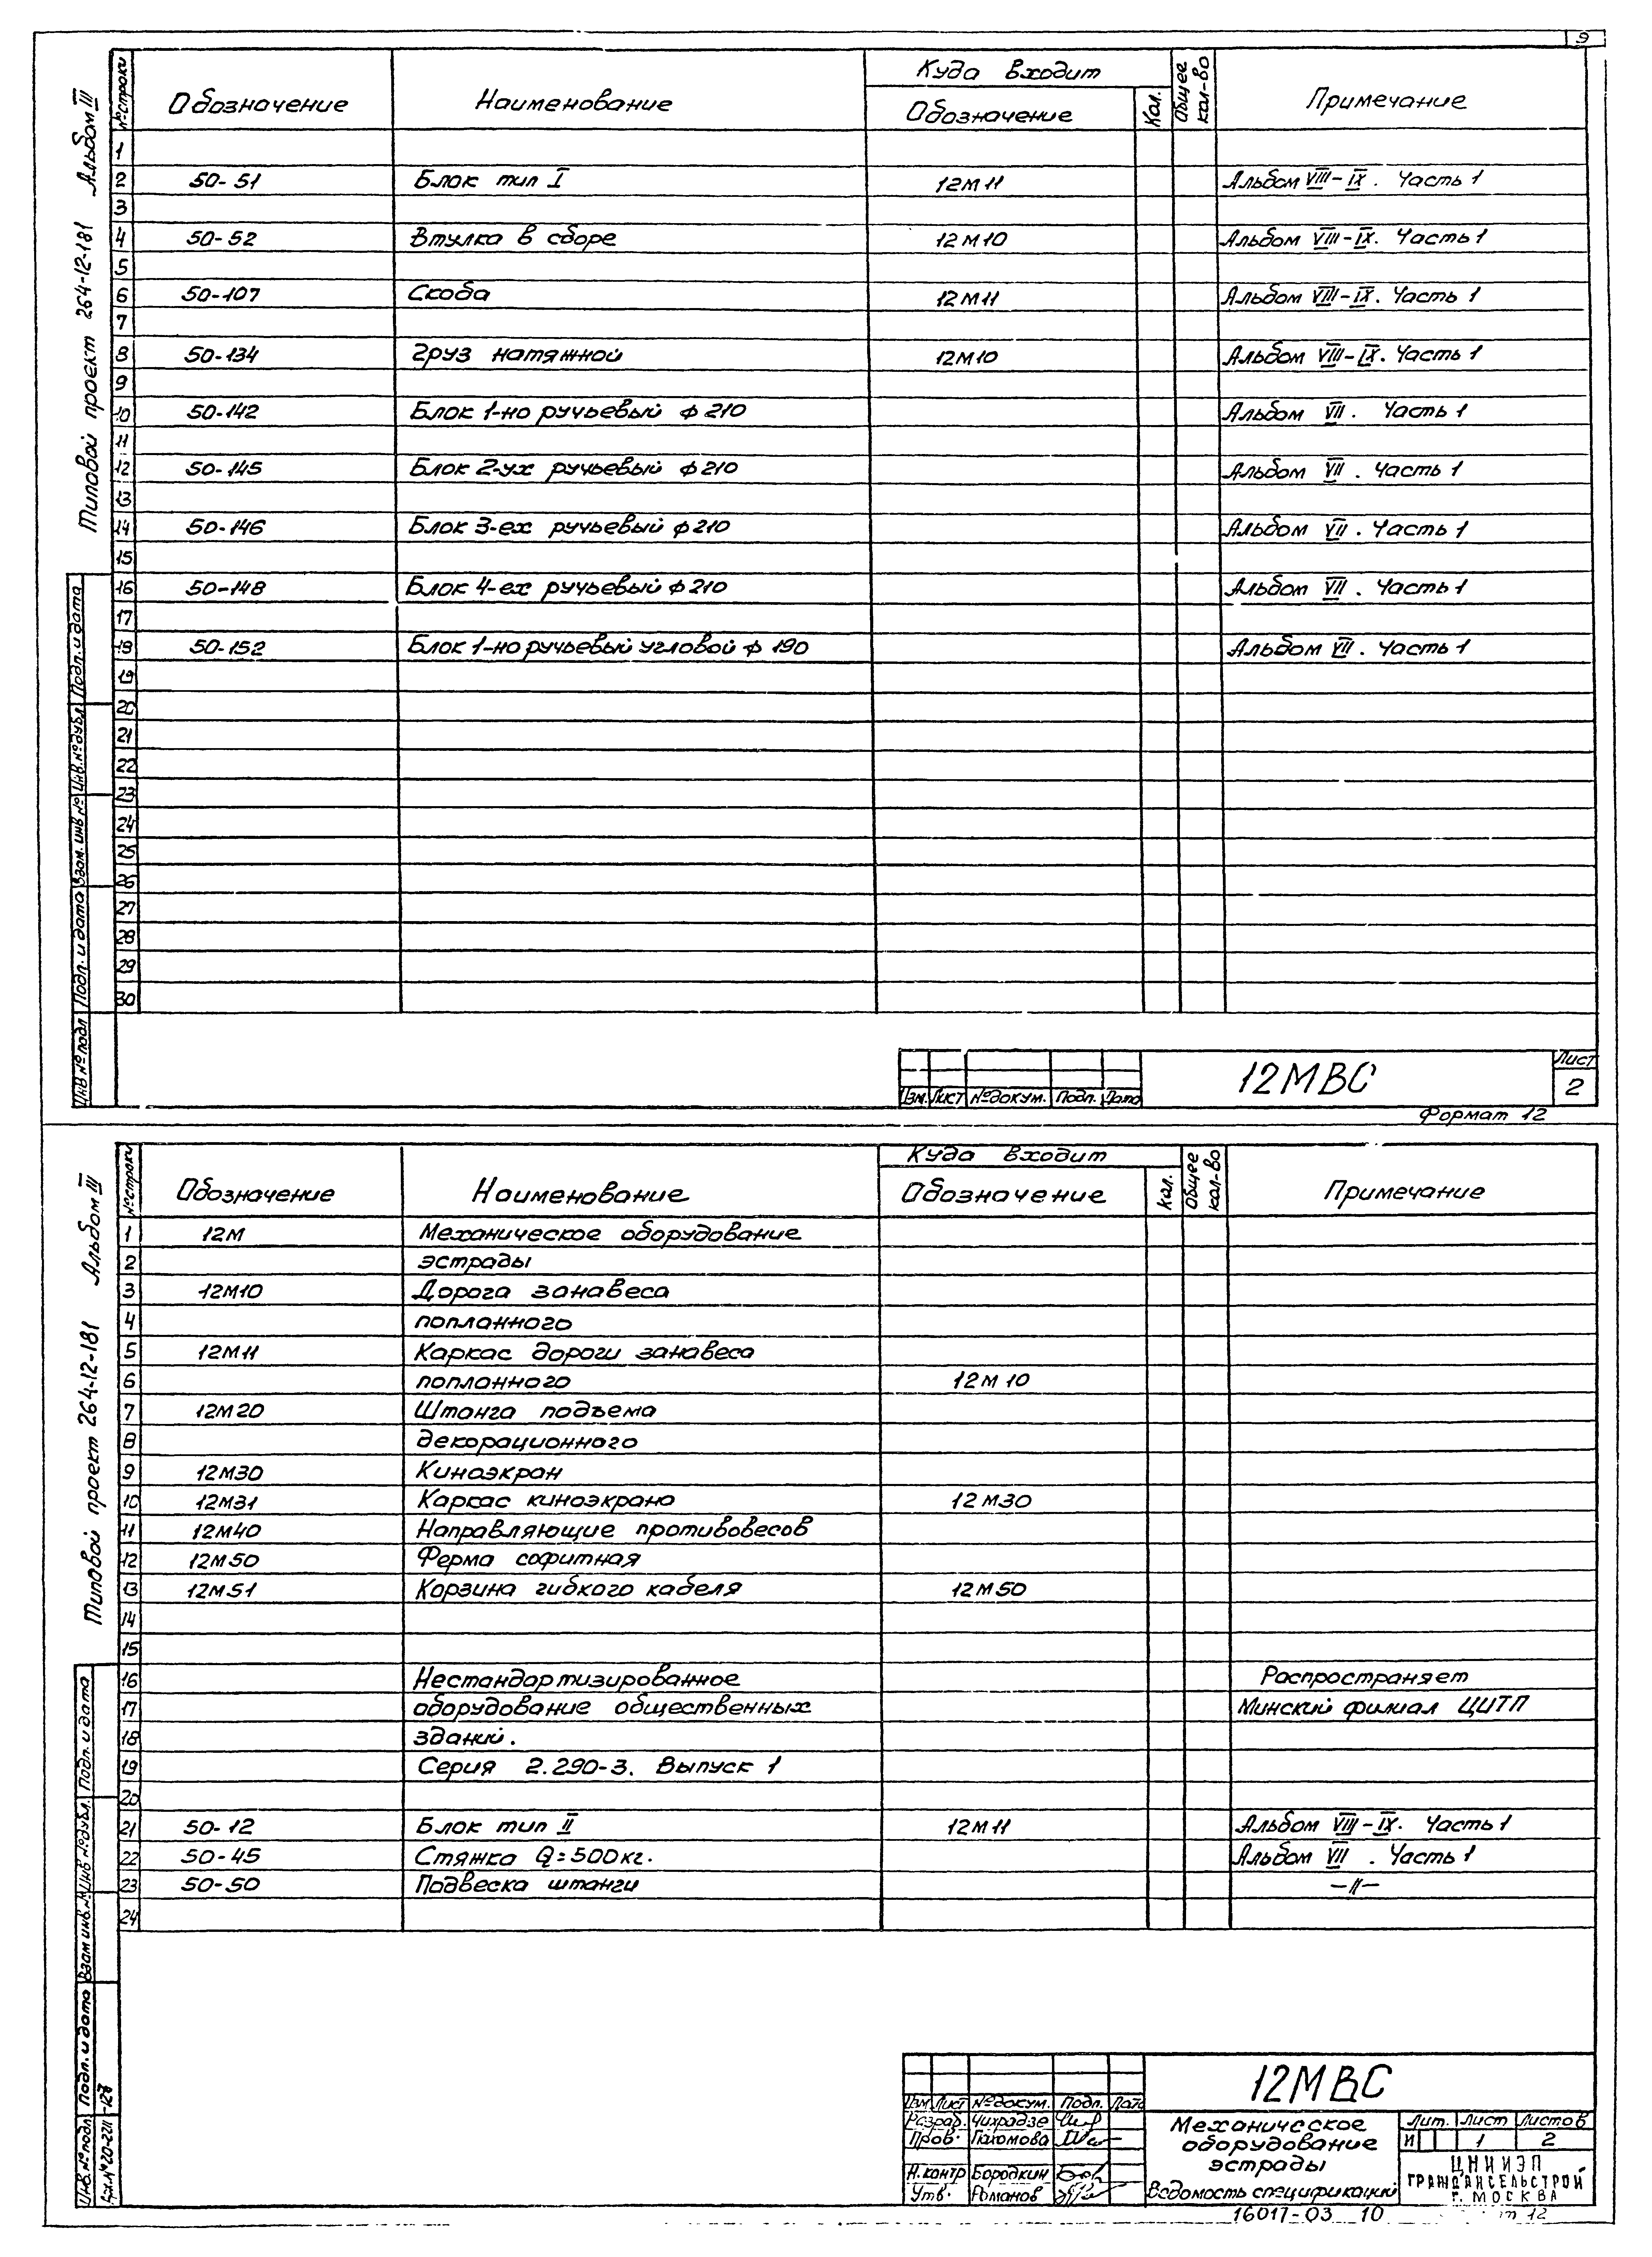 9
Типовой проект 264-12-181 Альбом III
№ строки Обозначение Наименование Куда входит Общее кол-во Примечание
Обозначение Кол.
1
2 50-51 Блок тип I 12М11 Альбом VIII-IX. Часть 1
3
4 50-52 Втулка в сборе 12М10 Альбом VIII-IX. Часть 1
5
6 50-107 Скоба 12М11 Альбом VIII-IX. Часть 1
7
8 50-134 Груз натяжной 12М10 Альбом VIII-IX. Часть 1
9
10 50-142 Блок 1-но ручьевый ф 210 Альбом VII. Часть 1
11
12 50-145 Блок 2-ух ручьевый ф 210 Альбом VII. Часть 1
13
14 50-146 Блок 3-ех ручьевый ф 210 Альбом VII. Часть 1
15
16 50-148 Блок 4-ех ручьевый ф 210 Альбом VII. Часть 1
17
18 50-152 Блок 1-но ручьевый угловой ф 190 Альбом VII. Часть 1
19
20
21
22
23
24
25
26
27
28
29
30
Инв № подл Подп. и дата Взам. инв № Инв. № дубл Подп. и дата
Изм. Лист № докум. Подп. Дата
12МВС
Лист
2
Формат 12
Типовой проект 264-12-181 Альбом III
№ строки Обозначение Наименование Куда входит Общее кол-во Примечание
Обозначение Кол.
1 12М Механическое оборудование
2 эстрады
3 12М10 Дорога занавеса
4 попланного
5 12М11 Каркас дороги занавеса
6 попланного 12М10
7 12М20 Штанга подъема
8 декорационного
9 12М30 Киноэкран
10 12М31 Каркас киноэкрана 12М30
11 12М40 Направляющие противовесов
12 12М50 Ферма софитная
13 12М51 Корзина гибкого кабеля 12М50
14
15
16 Нестандартизированное Распространяет
17 оборудование общественных Минский филиал ЦИТП
18 зданий.
19 Серия 2.290-3. Выпуск 1
20
21 50-12 Блок тип II 12М11 Альбом VIII-IX. Часть 1
22 50-45 Стяжка Q=500кг. Альбом VII. Часть 1
23 50-50 Подвеска штанги —II—
24
Инв. № подл Подп. и дата Взам инв. № Инв № дубл. Подп. и дата
Изм Лист № докум. Подп. Дата
Разраб. Чихрадзе
Пров. Пахомова
Н. контр Бородкин
Утв. Романов
12МВС
Механическое
оборудование
эстрады
Ведомость спецификаций
Лит. Лист Листов
И 1 2
ЦНИИЭП
ГРАЖДАНСЕЛЬСТРОЙ
г. МОСКВА
16017-03 10
12